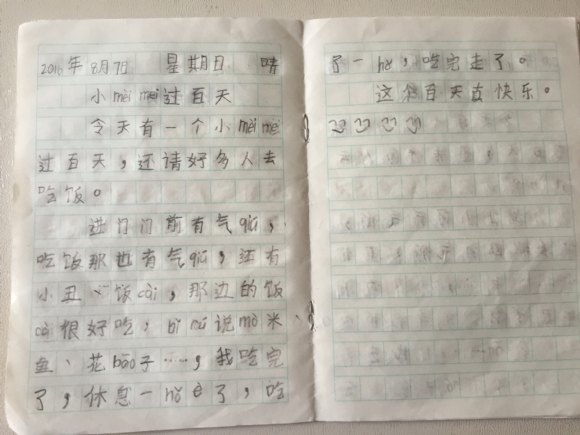 2016年8月7日 星期日 晴
小mèi mei过百天
今天有一个小mèi mei
过百天，还请好多人去
吃饭。
进门门前有气qiú，
吃饭那也有气qiú，还有
小丑、饭cài，那边的饭
cài很好吃，bǐ rú说mò米
鱼、花bāo子……，我吃完
了，休息一hǔ è了，吃
了一hǔ，吃完走了。
这个百天真快乐。